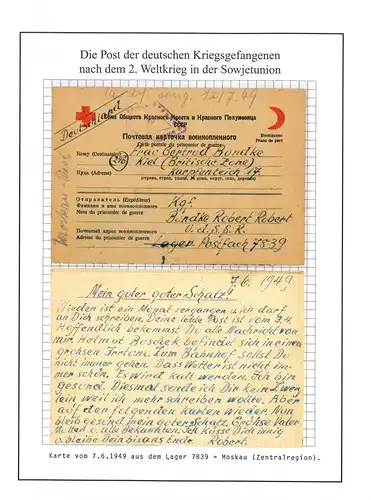 Die Post der deutschen Kriegsgefangenen
nach dem 2. Weltkrieg in der Sowjetunion
12/7.49
Deutschland
Союз Обществ Красного Креста и Красного Полумесяца
СССР
Почтовая карточка военнопленного
Carte postale du prisonnier de guerre
Бесплатно
Franc de port
Кому (Destinataire) Frau Gertrud Bündke
Куда (Adresse) Kiel (Britische Zone)
Karpfenteich 17
Отправитель (Expéditeur)
Фамилия и имя военнопленного
Nom du prisonnier de guerre
Kgf.
Bündke Robert Robert
Почтовый адрес военнопленного
Adresse du prisonnier de guerre
U.d.S.S.R.
Lager Postfach 7839
7.6.1949
Mein guter guter Schatz!
Wieder ist ein Monat vergangen u. ich darf
an Dich schreiben. Deine letzte Post ist vom
Hoffentlich bekommst Du alle Nachricht von
mir. Helmut Buschek befindet sich in einem
grossen Irrtum. Zum Bahnhof sollst Du
nicht immer gehen. Das Wetter ist nicht im-
mer schön. Es wird kalt werden. Ich bin
gesund. Diesmal sende ich Dir kein
weil ich mehr schreiben wollte. Aber
auf den folgenden Karten wieder. Nun
bleib gesund mein guter Schatz. Grüsse Vater
Mutter u. alle Bekannten. Ich küsse Dich innig
u. bleibe Dein bis ans Ende Robert.
Karte vom 7.6.1949 aus dem Lager 7839 = Moskau (Zentralregion).